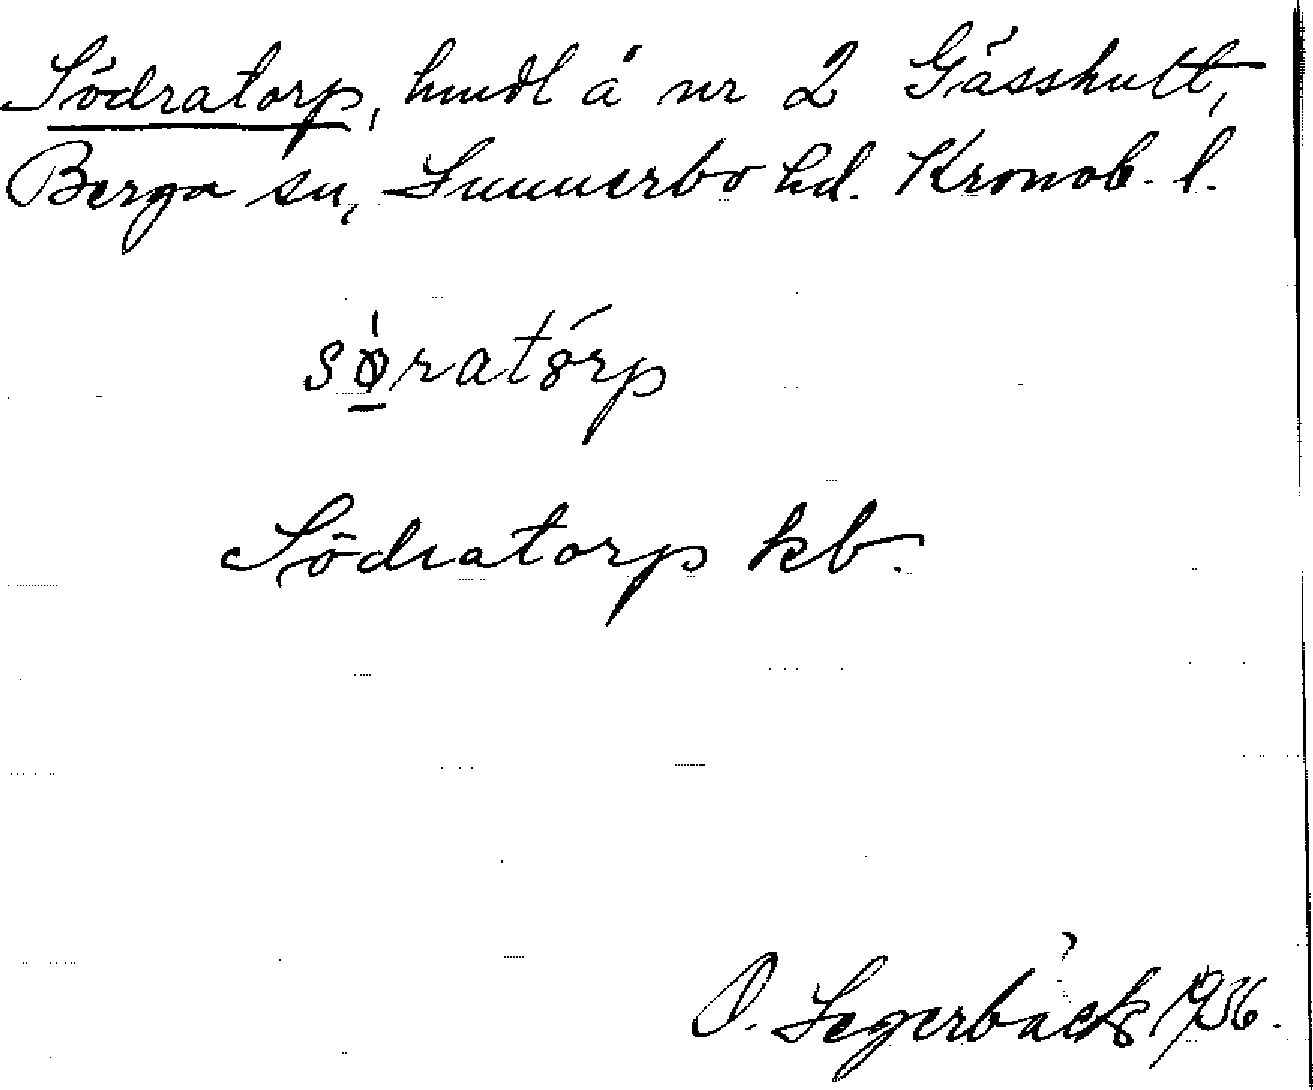 Södratorp, hmdl å nr 2 Gåsshult,
Berga sn, Sunnerbo hd. Kronob. l.
søratórp
Södratorp kb.
O. Segerbäck 1936.